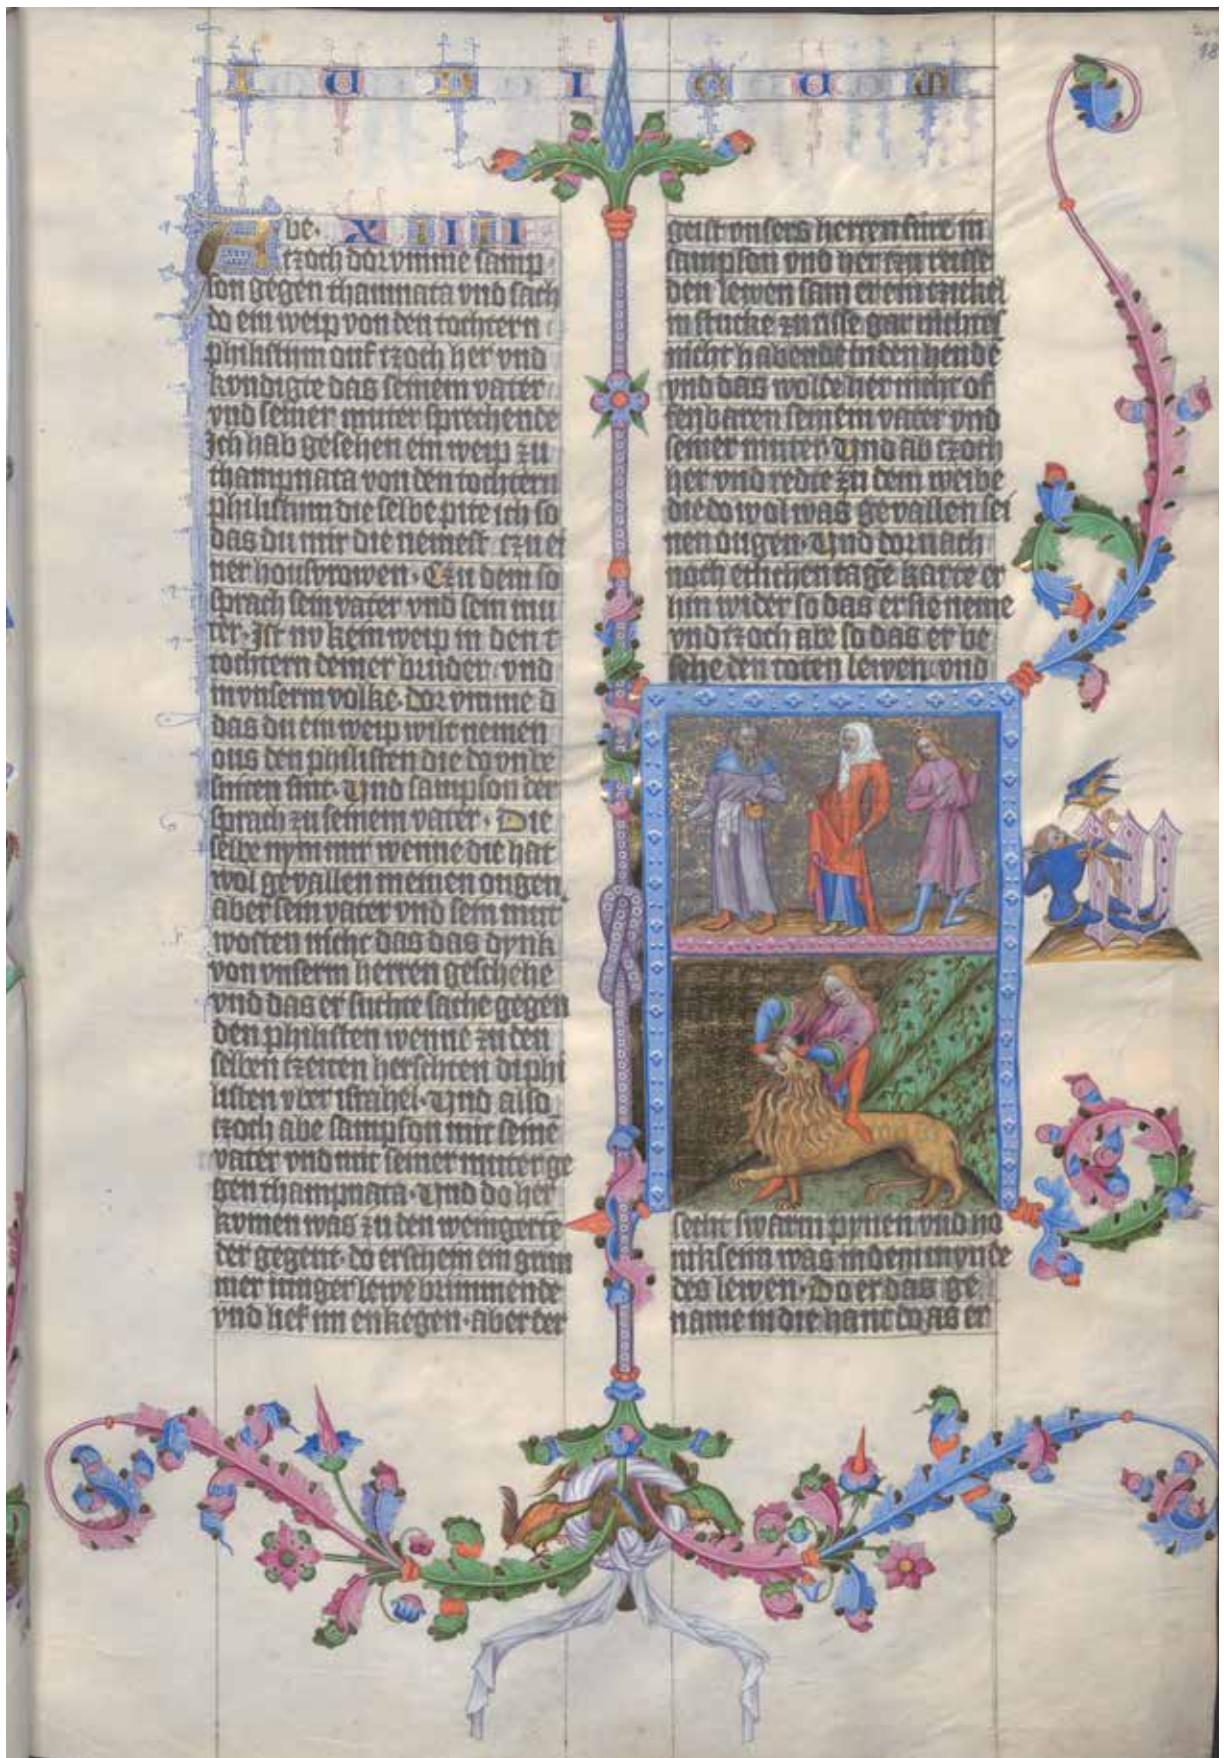 I U D I C U M
Abe· XIIII
tzoch dorvmme samp
son gegen thamnata vnd sach
do ein weip von den tochtern
philistiim ouf tzoch her vnd
kvndigte das seinem vater
vnd seiner muter sprechende
Ich hab gesehen ein weip zu
thampnata von den tochtern
philistim die selbe pite ich so
das du mir die nemest tzu ei
ner housvrowen· Tzu dem so
sprach sein vater vnd sein mu
ter· Ist nv kein weip in den t
tochtern deiner bruder vnd
in vnserm volke· dorvmme d
das du ein weip wilt nemen
ous den philisten die do vnbe
sniten sint· Vnd sampson der
sprach zu seinem vater· Die
selbe nym mir wenne die hat
wol gevallen meinen ougen
aber sein vater vnd sein mut
wosten nicht das das dynk
von vnserm herren geschehe
vnd das er suchte sache gegen
den philisten wenne zu den
selben tzeiten herschten di phi
listen vber israhel· Vnd also
tzoch abe sampson mit seinē
vater vnd mit seiner muter ge
gen thampnata· Vnd do her
kvmen was zu den weingerte
der gegent· do erschein ein grim
mer iunger lewe brimmende
vnd lief im enkegen· aber der
geist vnsers herren fiirt in
sampson vnd her tzu risse
den lewen sam er ein tzickel
in stucke zu risse gar nichtes
nicht habende in den hendē
vnd das wolde her nicht of
fenbaren seinem vater vnd
seiner muter· Vnd ab tzoch
her vnd redte zu dem weibe
die do wol was gevallen sei
nen ougen· Vnd dornach
noch etlichen tagē karte er
hin wider so das er sie neme
vnd tzoch abe so das er be
sehe den toten lewen vnd
secht swarm pynen vnd ho
nikseim was in dem mvnde
des lewen· Do er das ge
name in die hant do as er